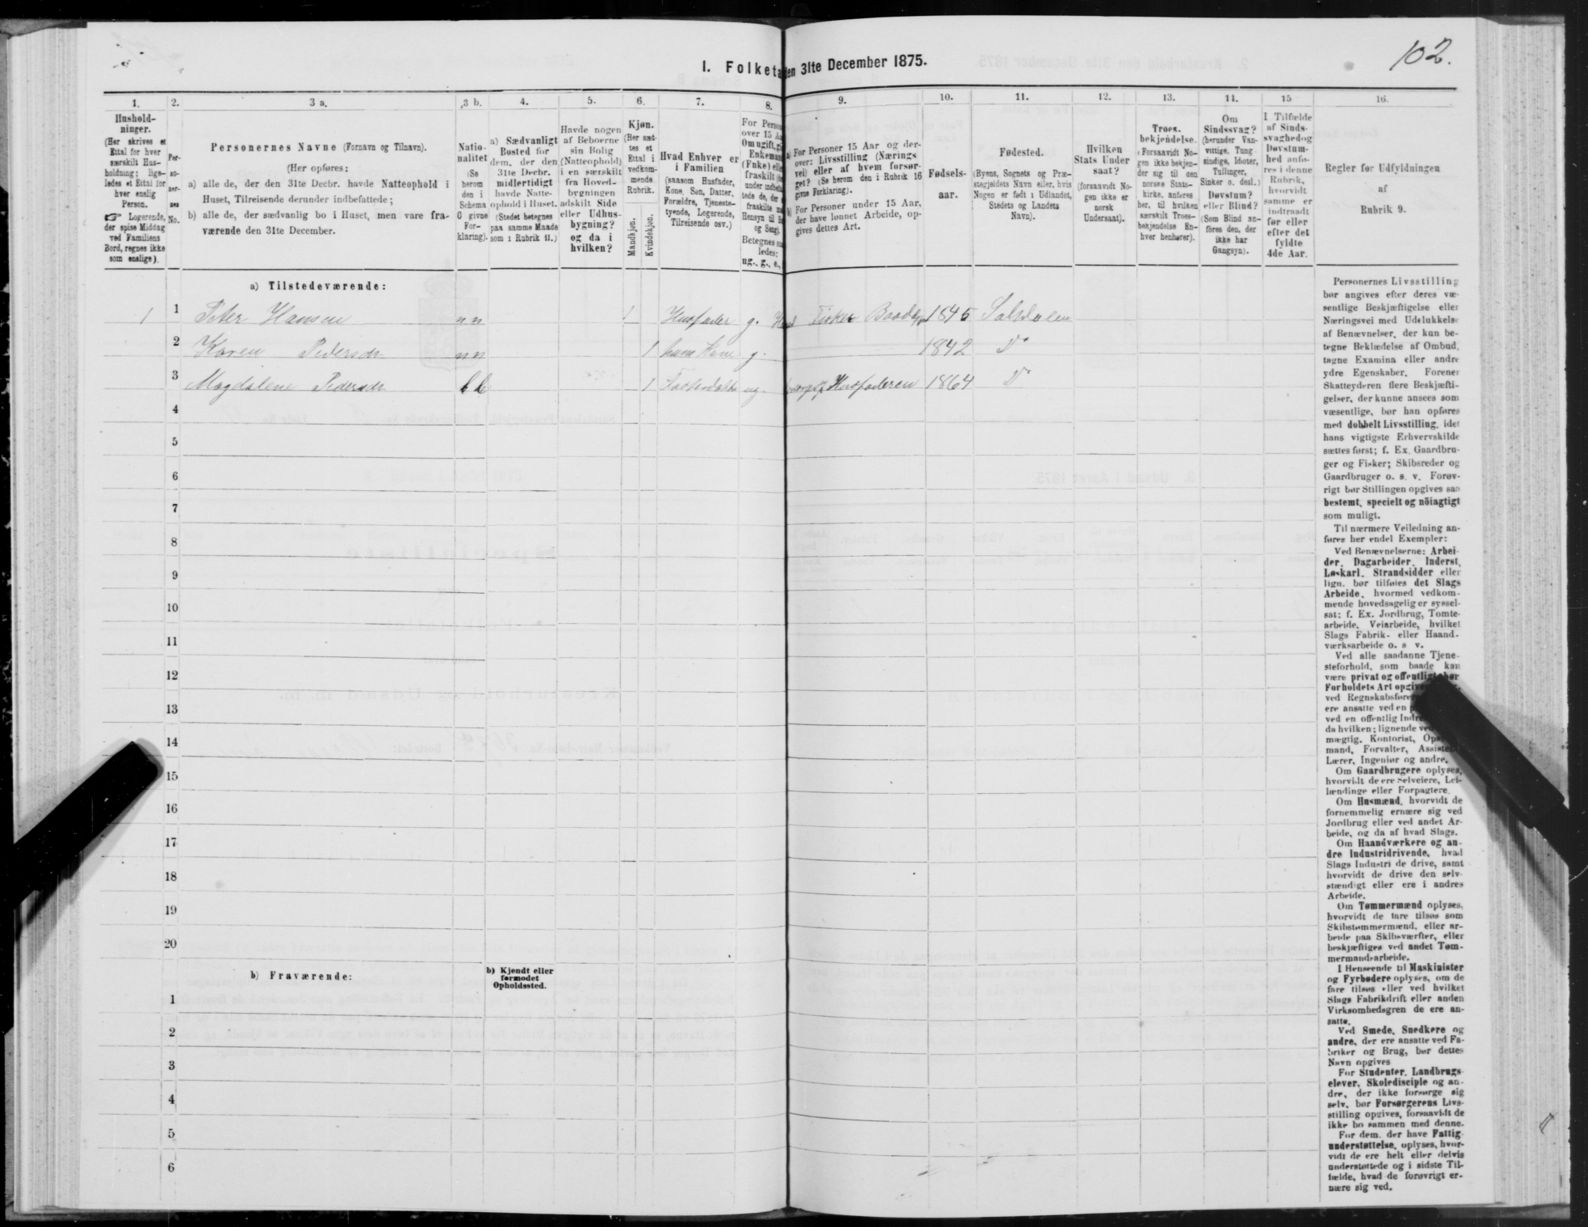 102.
I. Folketa
den 31te December 1875.
1.
2.
3 a.
3 b.
4.
5.
6.
7.
8.
9.
10.
11.
12.
13.
14.
15
16.
Hushold-
ninger.
(Her skrives et
Ettal for hver
særskilt Hus-
holdning; lige-
ledes et Ettal for
hver enslig
Person.
☞ Logerende,
der spise Middag
ved Familiens
Bord, regnes ikke
som enslige).
Per-
so-
ner-
nes
No.
Personernes Navne (Fornavn og Tilnavn).
(Her opføres:
a) alle de, der den 31te Decbr. havde Natteophold i
Huset, Tilreisende derunder indbefattede;
b) alle de, der sædvanlig bo i Huset, men vare fra-
værende den 31te December.
Natio-
nalitet
(Se
herom
den i
Schema
C givne
For-
klaring).
a) Sædvanligt
Bosted for
dem, der den
31te Decbr.
midlertidigt
havde Natte-
ophold i Huset.
(Stedet betegnes
paa samme Maade
som i Rubrik 11.)
Havde nogen
af Beboerne
sin Bolig
(Natteophold)
i en særskilt
fra Hoved-
bygningen
adskilt Side
eller Udhus-
bygning?
og da i
hvilken?
Kjøn.
(Her sæt-
tes et
Ettal i
vedkom-
mende
Rubrik.
Mandkjøn.
Kvindekjøn.
Hvad Enhver er
i Familien
(saasom Husfader,
Kone, Søn, Datter,
Forældre, Tjeneste-
tyende, Logerende,
Tilreisende osv.)
For Person
over 15 Aa
Om ugift, gi
Enkeman
(Enke) elle
fraskilt
under
tede de, der
fraskilte
Hensyn til
og Seng).
Betegnes
ledes:
ug., g., e.,
a) For Personer 15 Aar og der-
over: Livsstilling (Nærings
vei) eller af hvem forsør-
get? (Se herom den i Rubrik 16
givne Forklaring).
b) For Personer under 15 Aar,
der have lønnet Arbeide, op-
gives dettes Art.
Fødsels-
aar.
Fødested.
(Byens, Sognets og Præ-
stegjeldets Navn eller, hvis
Nogen er født i Udlandet,
Stedets og Landets
Navn).
Hvilken
Stats Under
saat?
(forsaavidt No-
gen ikke er
norsk
Undersaat).
Troes.
bekjendelse.
(Forsaavidt No-
gen ikke bekjen-
der sig til den
norske Stats-
kirke, anføres
her, til hvilken
særskilt Troes-
bekjendelse En-
hver henhører).
Om
Sindssvag?
(herunder Van-
vittige, Tung
sindige, Idioter,
Tullinger,
Sinker o. desl.)
Døvstum?
eller Blind?
(Som Blind an-
føres den, der
ikke har
Gangsyn).
I Tilfælde
af Sinds-
svaghed og
Døvstum-
hed anfø-
res i denne
Rubrik,
hvorvidt
samme er
indtraadt
før eller
efter det
fyldte
4de Aar.
Regler for Udfyldningen
af
Rubrik 9.
a) Tilstedeværende:
1 1 Peter Hansen nn 1 Husfader g. Fisker 1845 Saltdalen
2 Karen Pedersdr nn 1 hans Kone g. 1842 D°
3 Magdalene Pedersdr bl 1 ug. Husfaderen 1864 D°
4
5
6
7
8
9
10
11
12
13
14
15
16
17
18
19
20
b) Fraværende:
b) Kjendt eller
formodet
Opholdssted.
1
2
3
4
5
6
Personernes Livsstilling
bør angives efter deres væ-
sentlige Beskjæftigelse eller
Næringsvei med Udelukkelse
af Benævnelser, der kun be-
tegne Beklædelse af Ombud,
tagne Examina eller andre
ydre Egenskaber. Forener
Skatteyderen flere Beskjæfti-
gelser, der kunne ansees som
væsentlige, bør han opføres
med dobbelt Livsstilling, idet
hans vigtigste Erhvervskilde
sættes først; f. Ex. Gaardbru-
ger og Fisker; Skibsreder og
Gaardbruger o. s. v. Forøv-
rigt bør Stillingen opgives saa
bestemt, specielt og nöiagtigt
som muligt.
Til nærmere Veiledning an-
føres her endel Exempler:
Ved Benævnelserne: Arbei-
der, Dagarbeider, Inderst,
Løskarl, Strandsidder eller
lign. bør tilføies det Slags
Arbeide, hvormed vedkom-
mende hovedsagelig er syssel-
sat; f. Ex. Jordbrug, Tomte-
arbeide, Veiarbeide, hvilket
Slags Fabrik- eller Haand-
værksarbeide o. s v.
Ved alle saadanne Tjene-
steforhold, som baade kan
være privat og offentligt, bør
Forholdets Art
ved
ere ansatte ved en
ved en offentlig
da hvilken; lignende
mægtig, Kontorist,
mand, Forvalter,
Lærer, Ingeniør og andre.
Om Gaardbrugere oplyses,
hvorvidt de ere Selveiere, Lei-
lændinge eller Forpagtere.
Om Husmænd, hvorvidt de
fornemmelig ernære sig ved
Jordbrug eller ved andet Ar-
beide, og da af hvad Slags.
Om Haandværkere og an-
dre Industridrivende, hvad
Slags Industri de drive, samt
hvorvidt de drive den selv-
stændigt eller ere i andres
Arbeide.
Om Tømmermænd oplyses,
hvorvidt de fare tilsøs som
Skibstømmermænd, eller ar-
beide paa Skibsværfter, eller
beskjæftiges ved andet Tøm-
mermandsarbeide.
I Henseende til Maskinister
og Fyrbødere oplyses, om de
fare tilsøs eller ved hvilket
Slags Fabrikdrift eller anden
Virksomhedsgren de ere an-
satte.
Ved Smede, Snedkere og
andre, der ere ansatte ved Fa-
briker og Brug, bør dettes
Navn opgives
For Studenter, Landbrugs-
elever, Skoledisciple og an-
dre, der ikke forsørge sig
selv, bør Forsørgerens Livs-
stilling opgives, forsaavidt de
ikke bo sammen med denne.
For dem, der have Fattig
understøttelse, oplyses, hvor-
vidt de ere helt eller delvis
understøttede og i sidste Til-
fælde, hvad de forøvrigt er-
nære sig ved.